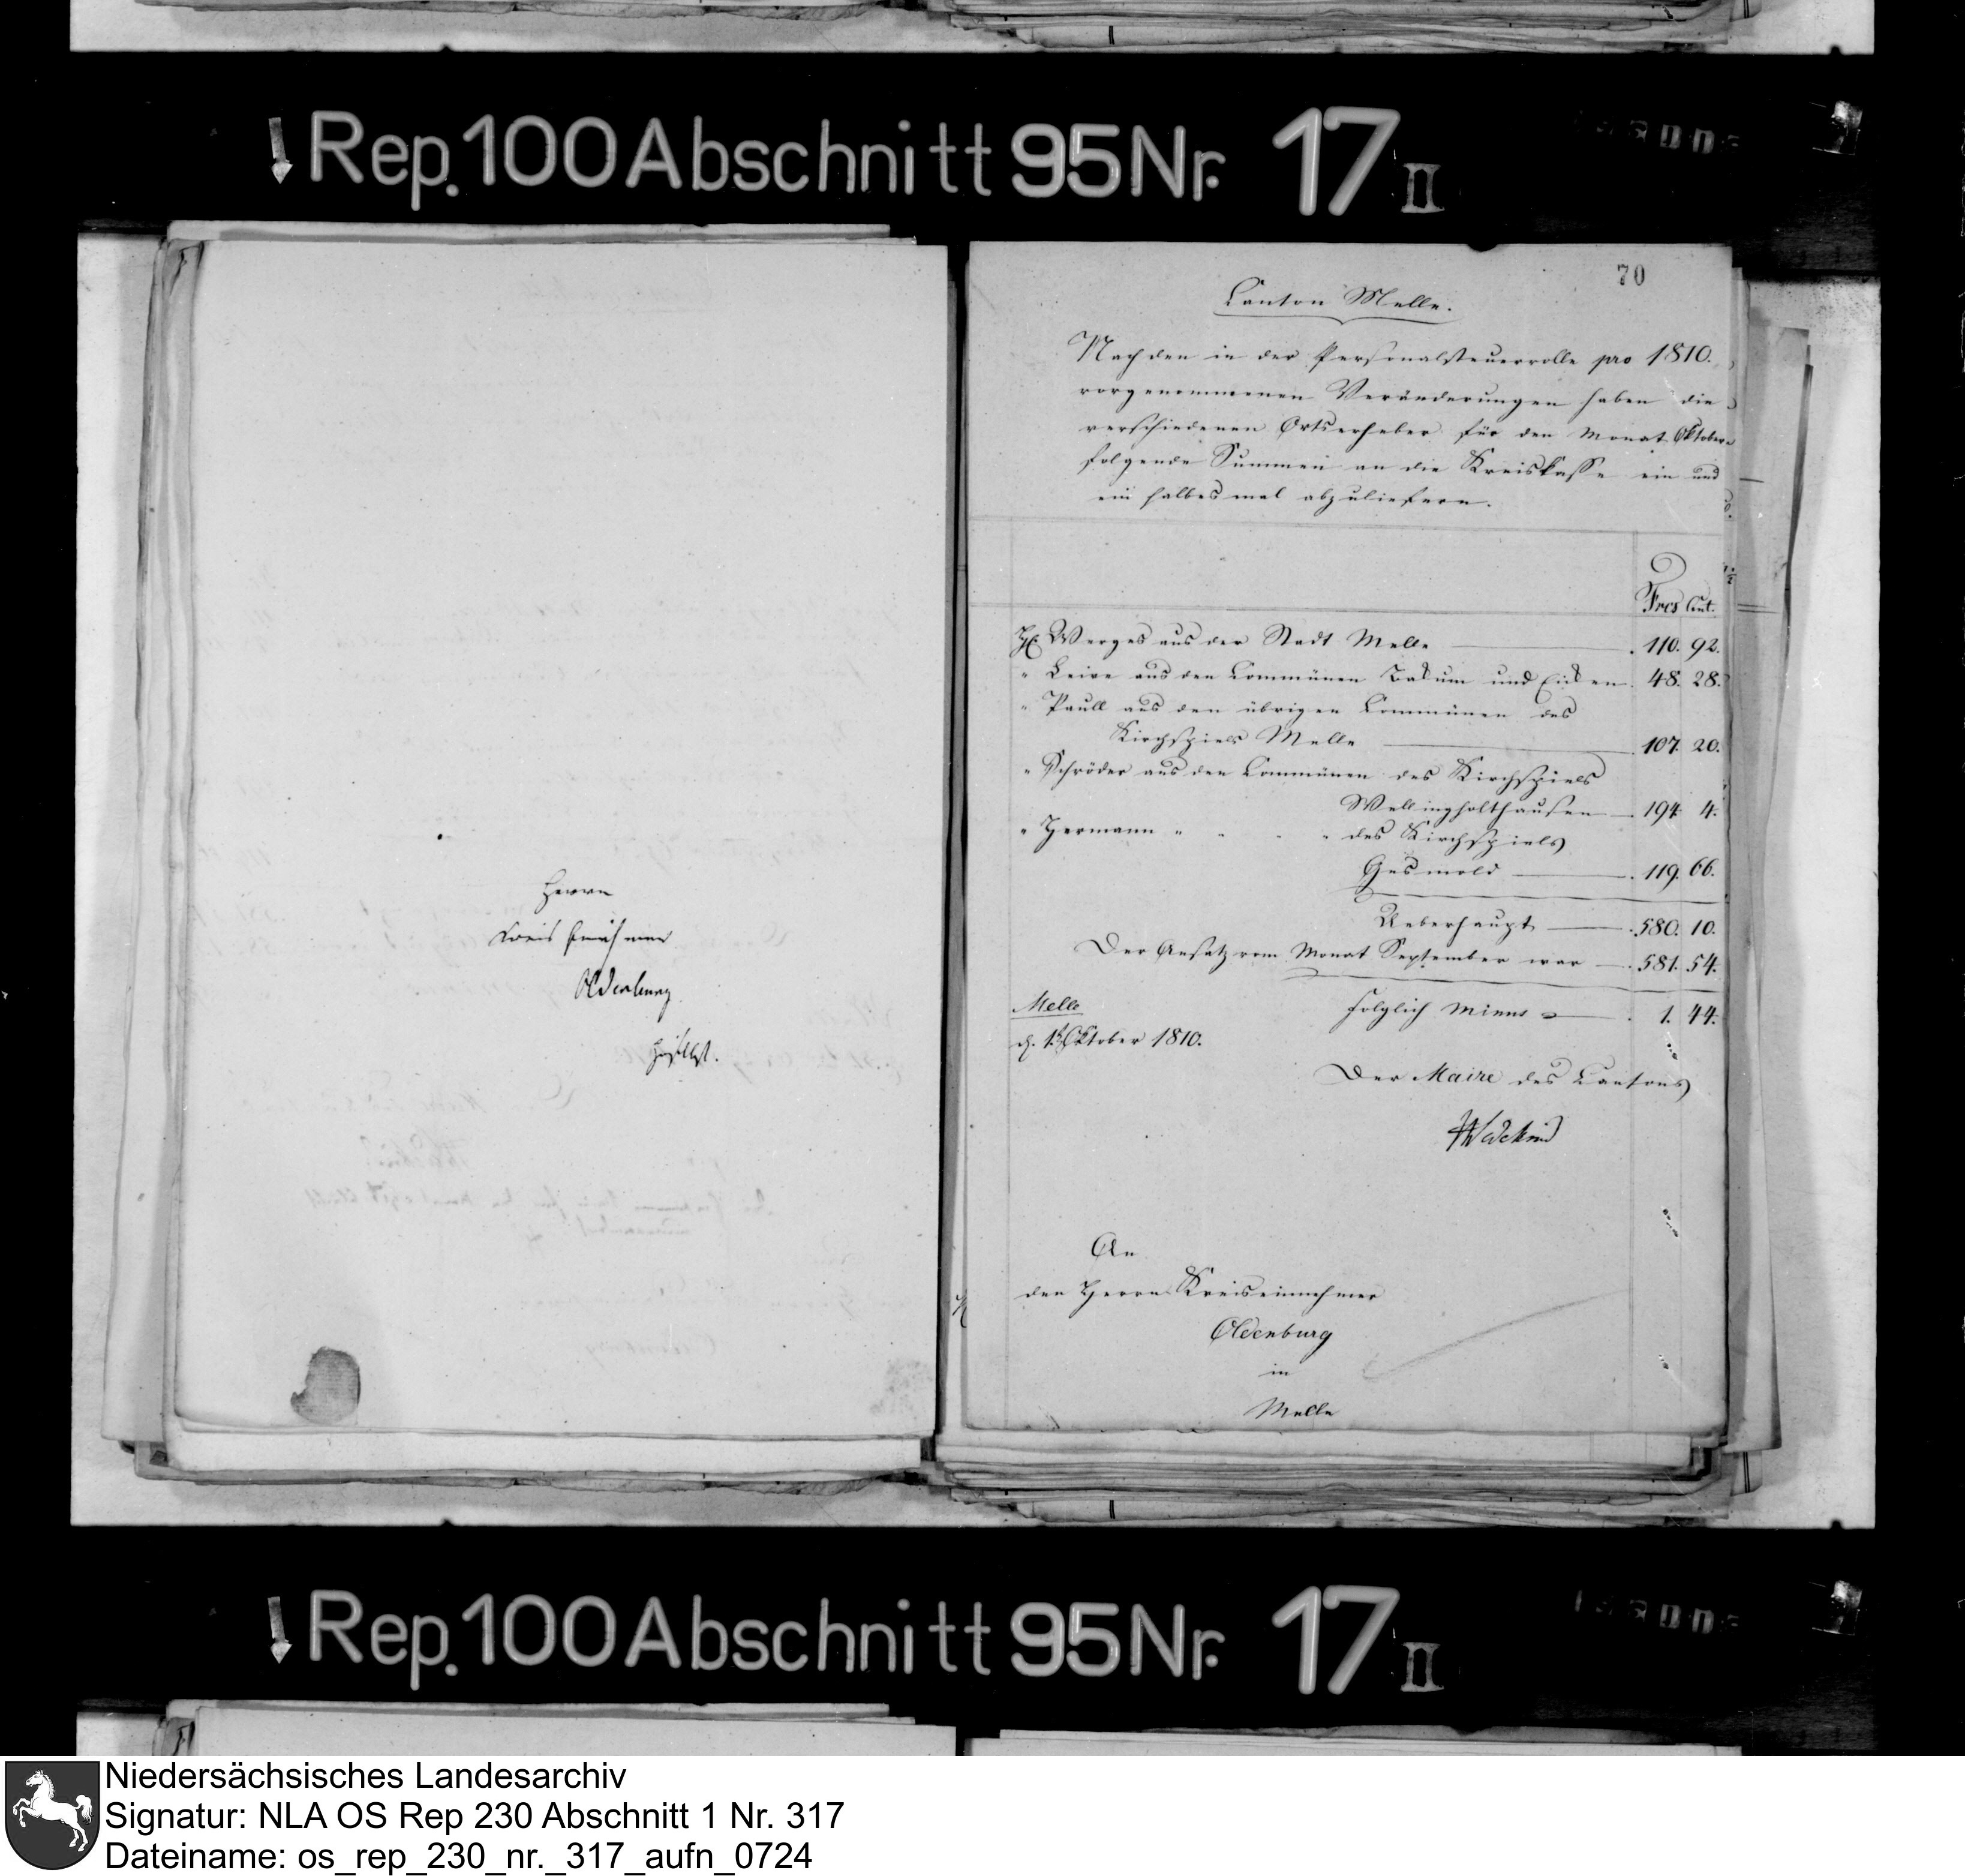 Rep. 100 Abschnitt 95 Nr. 17 II
Herrn
Kreis Einnehmer
Oldenburg
70
Canton Melle.
Nach den in der Personalsteuerrolle pro 1810.
vorgenommenen Veränderungen haben die
verschiedenen Ortserheber für den Monat Oktober
folgende Summen an die Kreiskasse ein und
ein halbes mal abzuliefern.
Frcs Cent.
H. Werges aus der Stadt Melle . 110. 92.
" Leive aus den Communen Bakum und Eicken . 48. 28.
" Paull aus den übrigen Communen des
Kirchspiels Melle . 107. 20.
" Schröder aus den Communen des Kirchspiels
Wellingholthausen 194. 4.
" Hermann " " " " des Kirchspiels
Gesmold . 119. 66.
Ueberhaupt . 580. 10.
Der Ansatz vom Monat September war . 581. 54.
folglich minus . 1. 44.
Melle
d. 1t Oktober 1810.
Der Maire des Cantons
Wedekind
An
den Herrn Kreiseinnehmer
Oldenburg
in
Melle
Rep. 100 Abschnitt 95 Nr. 17 II
Niedersächsisches Landesarchiv
Signatur: NLA OS Rep 230 Abschnitt 1 Nr. 317
Dateiname: os_rep_230_nr._317_aufn_0724